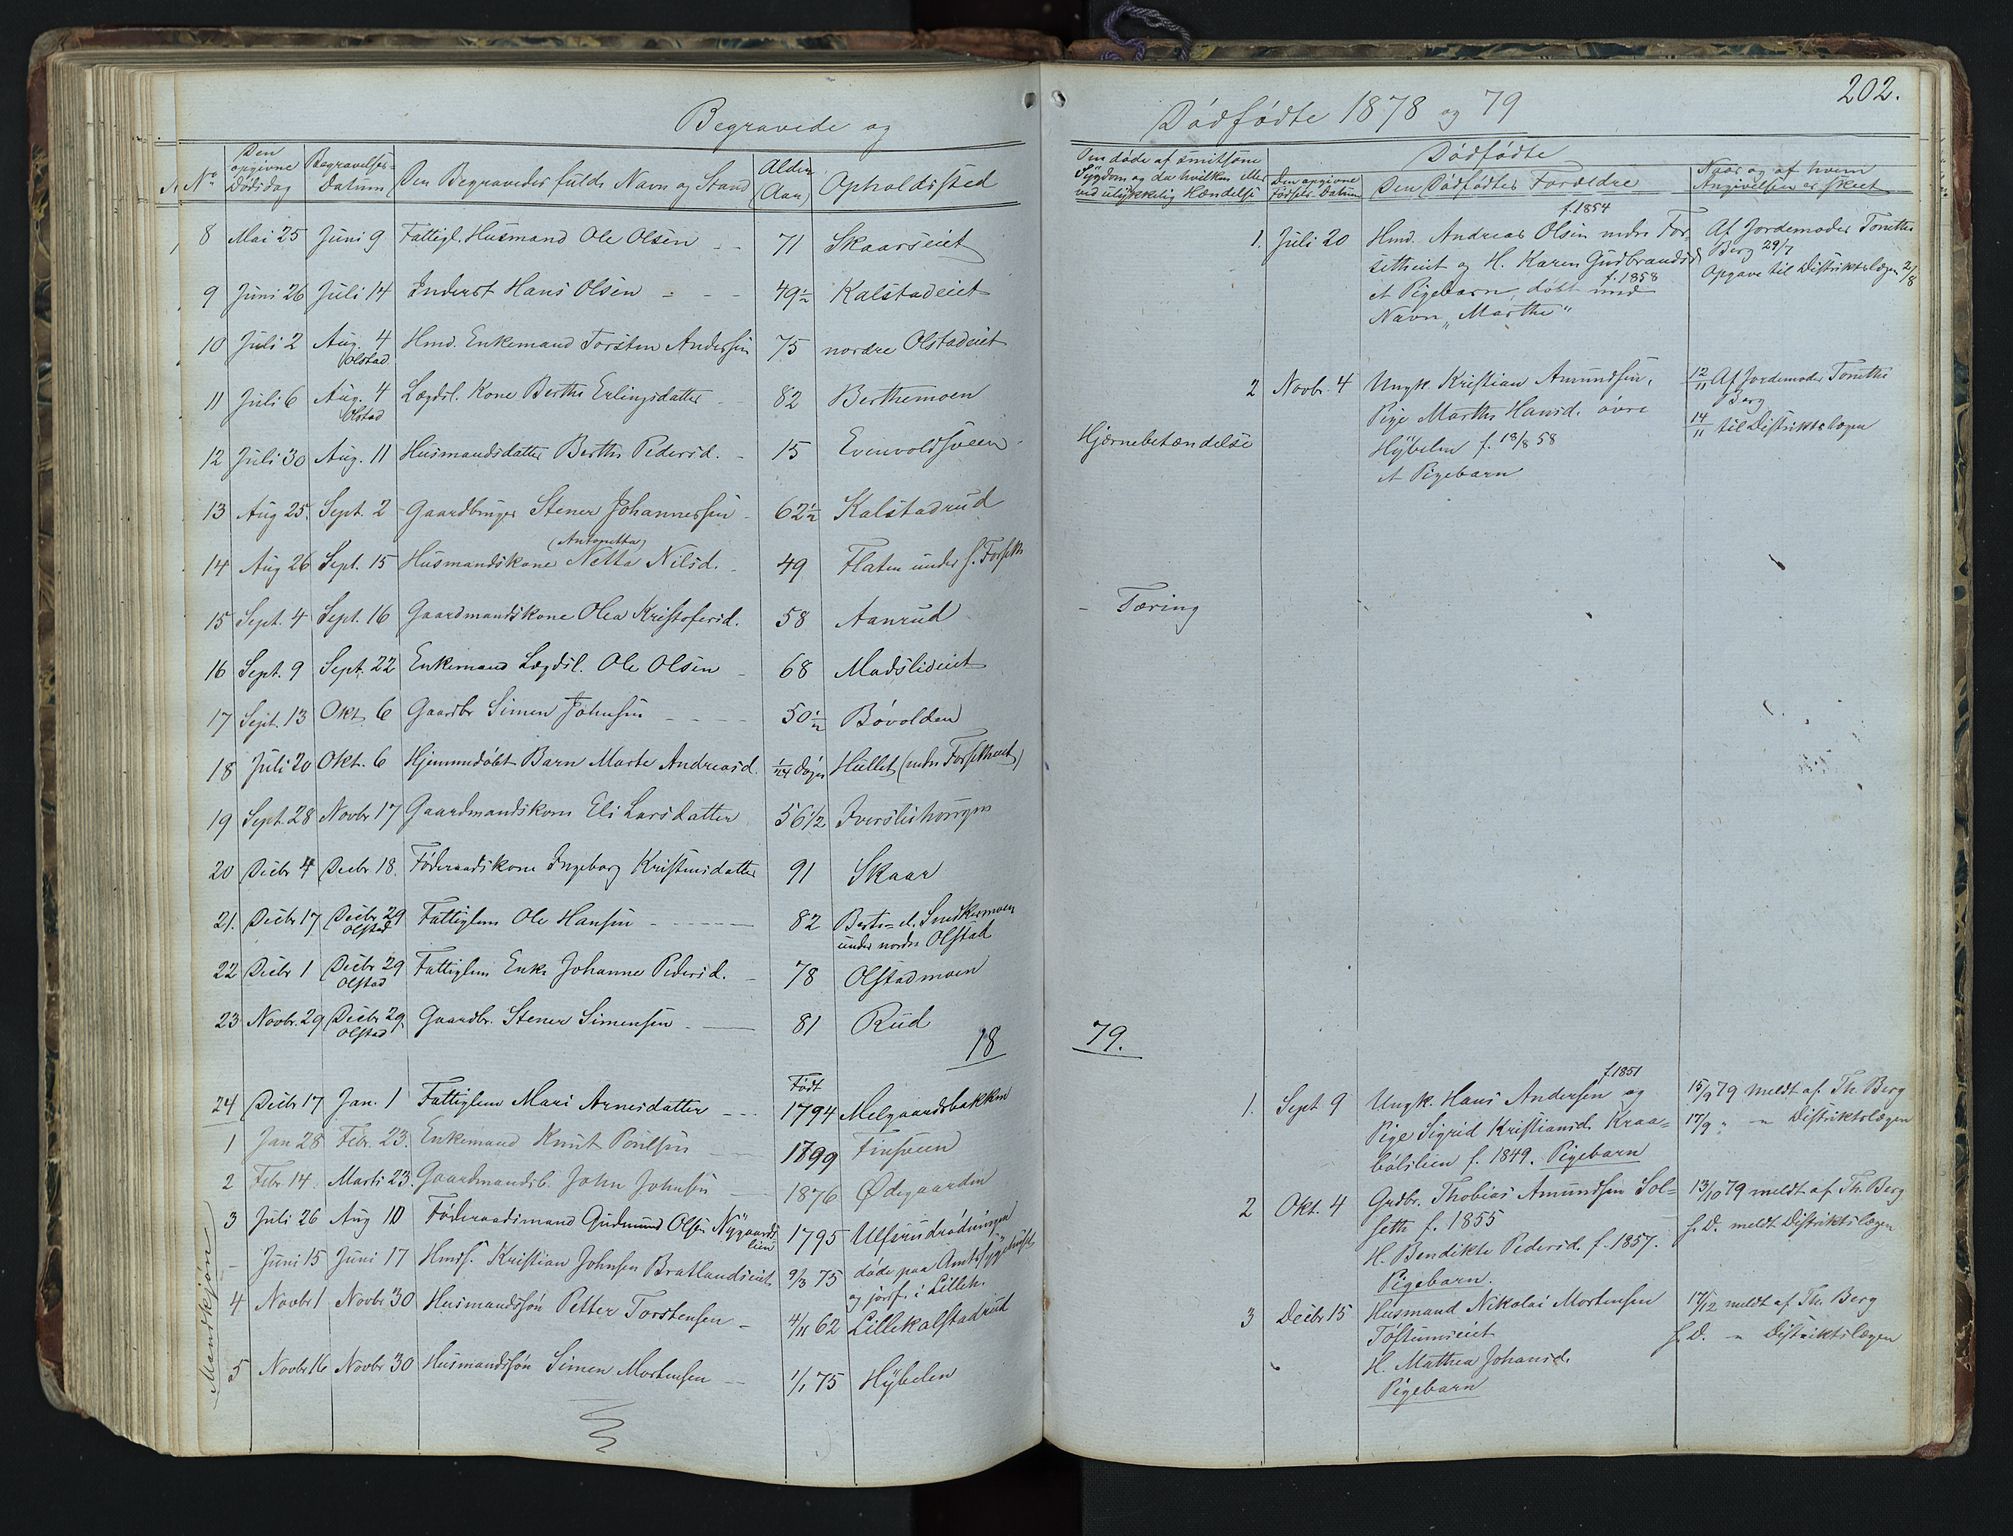 Begravede og
No
Den opgivne Dødsdag
Begravelses-Datum
Den Begravedes fulde Navn og Stand
Alder (Aar)
Opholdssted
8 Mai 25 Juni 9 Fattigl. Husmand Ole Olsen 71 Skaarseiet
9 Juni 26 Juli 14 Inderst Hans Olsen 49½ Kalstadeiet
10 Juli 2 Aug. 4 Olstad Hmd. Enkemand Torsten Andersen 75 nordre Olstadeiet
11 Juli 6 Aug. 4 Olstad Lægdsl. Kone Berthe Erlingsdatter 82 Berthemoen
12 Juli 30 Aug. 11 Husmandsdatter Berthe Pedersd. 15 Evenvoldsveen
13 Aug 25. Sept. 2 Gaardbruger Stener Johannessen 62½ Kalstadrud
14 Aug 26 Sept. 15 Husmandskone (Antonetta) Netta Nilsd. 49 Flaten under s. Forseth
15 Sept. 4 Sept. 16 Gaardmandskone Olea Kristofersd. 58 Aanrud
16 Sept. 9 Sept. 22 Enkemand Lægdsl. Ole Olsen 68 Madslieiet
17 Sept. 13 Okt. 6 Gaardbr Simen Johnsen 50½ Bøvolden
18 Juli 20 Okt. 6 Hjemmedøbt Barn Marte Andreasd. 1/24 Døgn Hullet (nedre Forsetheiet)
19 Sept. 28 Novbr 17 Gaardmandskone Eli Larsdatter 56 1/2 Iverslihougen
20 Decbr 4 Decbr 18. Føderaadskone Ingeborg Kristensdatter 91 Skaar
21. Decbr 17 Decbr 29 Olstad Fattiglem Ole Hansen 82 Berte= el. Snedkermoen
under nordre Olstad
22 Decbr 1 Decbr 29 Olstad Fattiglem Enke Johanne Pedersd. 78 Olstadmoen
23 Novbr. 29 Decbr 29. Olstad Gaardbr. Stener Simensen 81 Rud
18
Født
24 Decbr 17 Jan. 1 Fattiglem Mari Arnesdatter 1794 Melgaardsbakken
1 Jan 28 Febr. 23. Enkemand Knut Poulsen 1799 Finsveen
2 Febr. 14. Marts 23. Gaardmandsb. John Johnsen 1876 Ødegaarden
3 Juli 26 Aug 10 Føderaadsmand Gudmund Olsen Nygaardslien 1795 Ulfsrudrødningen
- Juni 15 Juni 17 Hmdf. Kristian Johnsen Bratlandseiet 9/3 75 døde paa Amtssygehuset
og jordf. i Lilleh.
4 Novbr 1 Novbr 30 Husmandssøn Petter Torstensen 4/11 62 Lillekalstadrud
5 Novbr 16 Novbr 30 Husmandssøn Simen Mortensen 1/1 75 Hybelen
Mandkjøn
Dødfødte 1878 og 79
202.
Om døde af smitsom
Sygdom og da hvilken eller
ved ulykkelig Hændelse
Dødfødte
Den opgivne Fødsels-Datum
Den Dødfødtes Forældre
Naar og af hvem
Angivelsen er skeet
Hjernebetændelse
- Tæring
1. Juli 20
f. 1854
Hmd. Andreas Olsen nedre For-
setheiet og H. Karen Gudbrandsd.
f. 1858
et Pigebarn, døbt med
Navn „Marthe“
Af Jordemoder Tonethe
Berg 29/7
Opgave til Distriktslægen 2/8
2 Novbr. 4
Ungk. Kristian Amundsen,
Pige Marthe Hansd. øvre
Hybelen f. 18/8 58
et Pigebarn
12/11 Af Jordemoder Tonethe
Berg
14/11 til Distriktslægen
79.
1. Sept. 9
f. 1851
Ungk. Hans Andersen og
Pige Sigrid Kristiansd. Kraa-
bølslien f. 1849. Pigebarn
15/9 79 meldt af Th. Berg
17/9 „ – Distriktslægen
2 Okt. 4
Grdbr. Thobias Amundsen Sol-
seth f. 1855
H. Bendikte Pedersd. f. 1857.
Pigebarn.
13/10 79 meldt af Th. Berg
s. D. meldt Distriktslægen
3 Decbr 15
Husmand Nikolai Mortensen
Tøftumseiet
H. Mathea Johansd.
Pigebarn
17/12 meldt af Th. Berg
s. D. – Distriktslægen